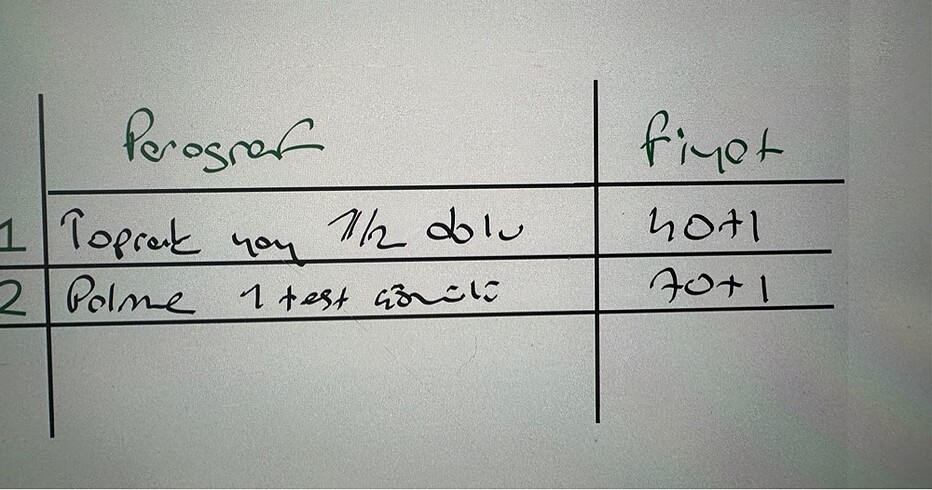 Paragraf Fiyat
1 Toprak yay 1/2 dolu 40+1
2 Palme 1 test çözülü 70+1